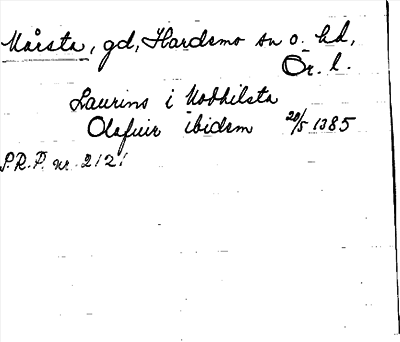 Mårsta, gd, Hardemo sn o. hd,
Ör. l.
Laurins i Modhilsta
Olafuir ibidem 20/5 1385
S.R.P. nr. 2121